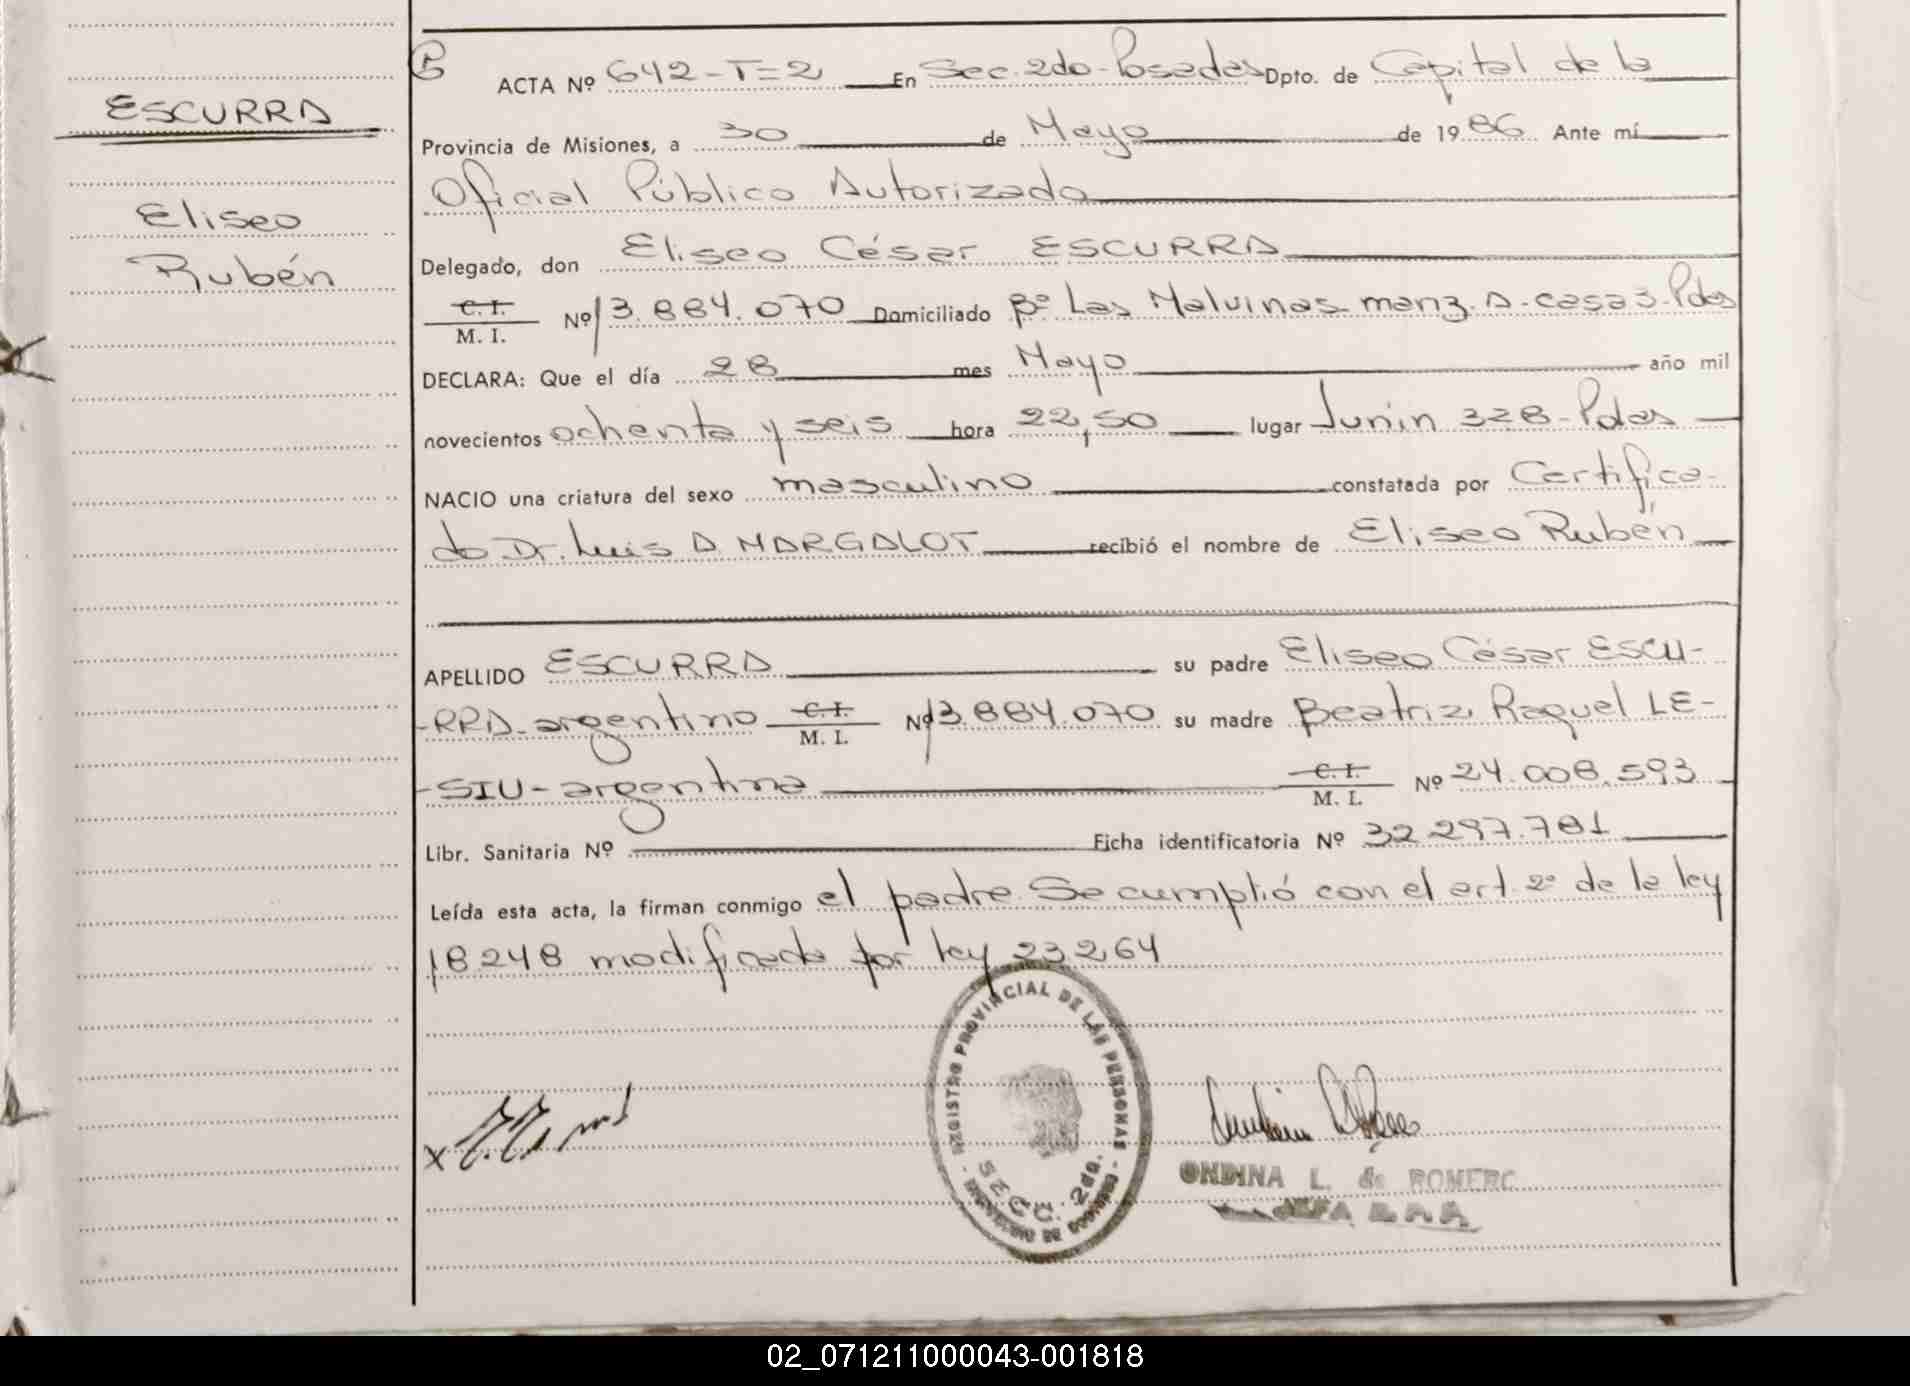 ESCURRA
Eliseo
Rubén
ACTA Nº 642-T=2 En Sec. 2do-Posadas Dpto. de Capital de la
Provincia de Misiones, a 30 de Mayo de 1986 Ante mí
Oficial Público Autorizado
Delegado, don Eliseo César ESCURRA
C. I.
M. I. Nº 13.884.070 Domiciliado Bº Las Malvinas manz. A-casa 3-Pdas
DECLARA: Que el día 28 mes Mayo año mil
novecientos ochenta y seis hora 22,50 lugar Junin 328-Pdas
NACIO una criatura del sexo masculino constatada por Certifica-
do Dr. Luis A MARGALOT recibió el nombre de Eliseo Rubén
APELLIDO ESCURRA su padre Eliseo César ESCU-
-RRA-argentino C. I. M. I. Nº 13.884.070 su madre Beatriz Raquel LE-
-SIU-argentina C. I. M. I. Nº 24.008.593
Libr. Sanitaria Nº Ficha identificatoria Nº 32 297.781
Leída esta acta, la firman conmigo el padre. Se cumplió con el art. 2º de la ley
18248 modificada por ley 23264
REGISTRO PROVINCIAL DE LAS PERSONAS
SECC. 2da.
ONDINA L. de ROMERO
JEFA
02_071211000043-001818